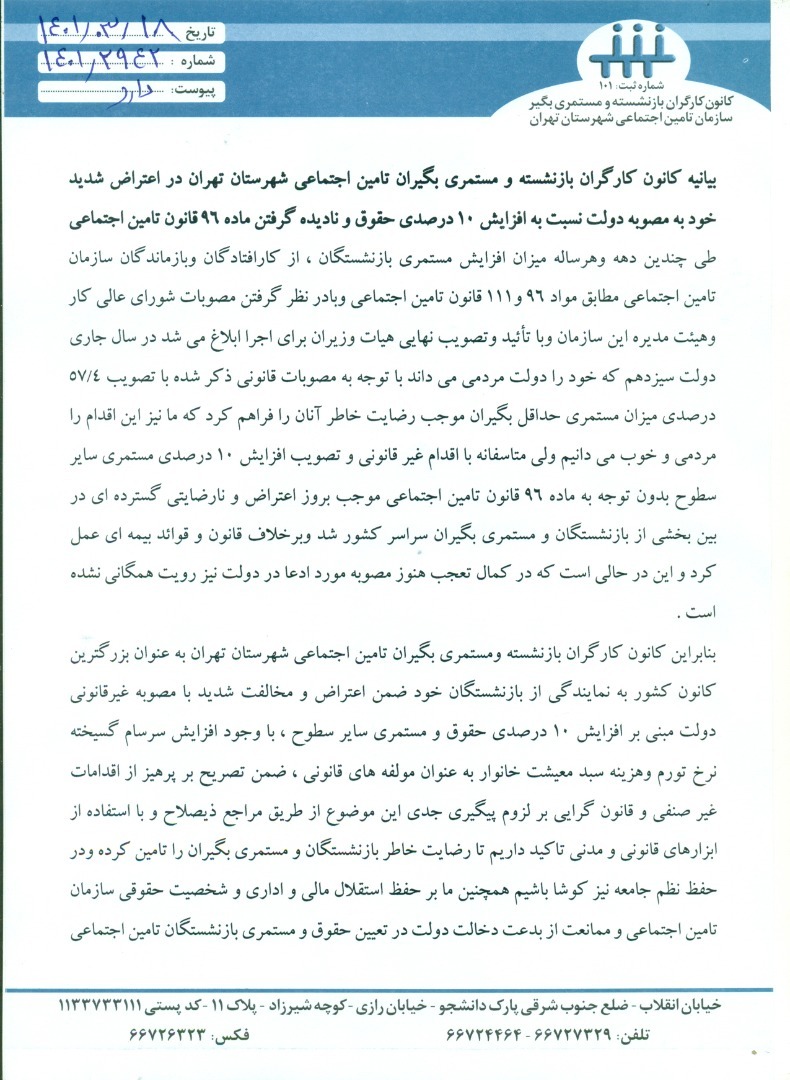 تاریخ ۱۴۰۱/۰۳/۱۸
شماره : ۱۴۰۱/۲۹۴۲
پیوست: دارد
شماره ثبت: ۱۰۱
کانون کارگران بازنشسته و مستمری بگیر
سازمان تامین اجتماعی شهرستان تهران
بیانیه کانون کارگران بازنشسته و مستمری بگیران تامین اجتماعی شهرستان تهران در اعتراض شدید
خود به مصوبه دولت نسبت به افزایش ۱۰ درصدی حقوق و نادیده گرفتن ماده ۹۶ قانون تامین اجتماعی
طی چندین دهه وهرساله میزان افزایش مستمری بازنشستگان ، از کارافتادگان وبازماندگان سازمان
تامین اجتماعی مطابق مواد ۹۶ و۱۱۱ قانون تامین اجتماعی وبادر نظر گرفتن مصوبات شورای عالی کار
وهیئت مدیره این سازمان وبا تأئید وتصویب نهایی هیات وزیران برای اجرا ابلاغ می شد در سال جاری
دولت سیزدهم که خود را دولت مردمی می داند با توجه به مصوبات قانونی ذکر شده با تصویب ۵۷/۴
درصدی میزان مستمری حداقل بگیران موجب رضایت خاطر آنان را فراهم کرد که ما نیز این اقدام را
مردمی و خوب می دانیم ولی متاسفانه با اقدام غیر قانونی و تصویب افزایش ۱۰ درصدی مستمری سایر
سطوح بدون توجه به ماده ۹۶ قانون تامین اجتماعی موجب بروز اعتراض و نارضایتی گسترده ای در
بین بخشی از بازنشستگان و مستمری بگیران سراسر کشور شد وبرخلاف قانون و قوائد بیمه ای عمل
کرد و این در حالی است که در کمال تعجب هنوز مصوبه مورد ادعا در دولت نیز رویت همگانی نشده
است .
بنابراین کانون کارگران بازنشسته ومستمری بگیران تامین اجتماعی شهرستان تهران به عنوان بزرگترین
کانون کشور به نمایندگی از بازنشستگان خود ضمن اعتراض و مخالفت شدید با مصوبه غیرقانونی
دولت مبنی بر افزایش ۱۰ درصدی حقوق و مستمری سایر سطوح ، با وجود افزایش سرسام گسیخته
نرخ تورم وهزینه سبد معیشت خانوار به عنوان مولفه های قانونی ، ضمن تصریح بر پرهیز از اقدامات
غیر صنفی و قانون گرایی بر لزوم پیگیری جدی این موضوع از طریق مراجع ذیصلاح و با استفاده از
ابزارهای قانونی و مدنی تاکید داریم تا رضایت خاطر بازنشستگان و مستمری بگیران را تامین کرده ودر
حفظ نظم جامعه نیز کوشا باشیم همچنین ما بر حفظ استقلال مالی و اداری و شخصیت حقوقی سازمان
تامین اجتماعی و ممانعت از بدعت دخالت دولت در تعیین حقوق و مستمری بازنشستگان تامین اجتماعی
خیابان انقلاب - ضلع جنوب شرقی پارک دانشجو - خیابان رازی - کوچه شیرزاد - پلاک ۱۱ - کد پستی ۱۱۳۳۷۳۳۱۱۱
تلفن: ۶۶۷۲۷۳۲۹ - ۶۶۷۲۴۴۶۴ فکس: ۶۶۷۲۶۳۲۳